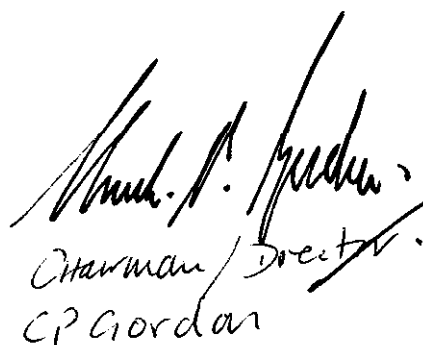 Chairman / Director.
CP Gordon